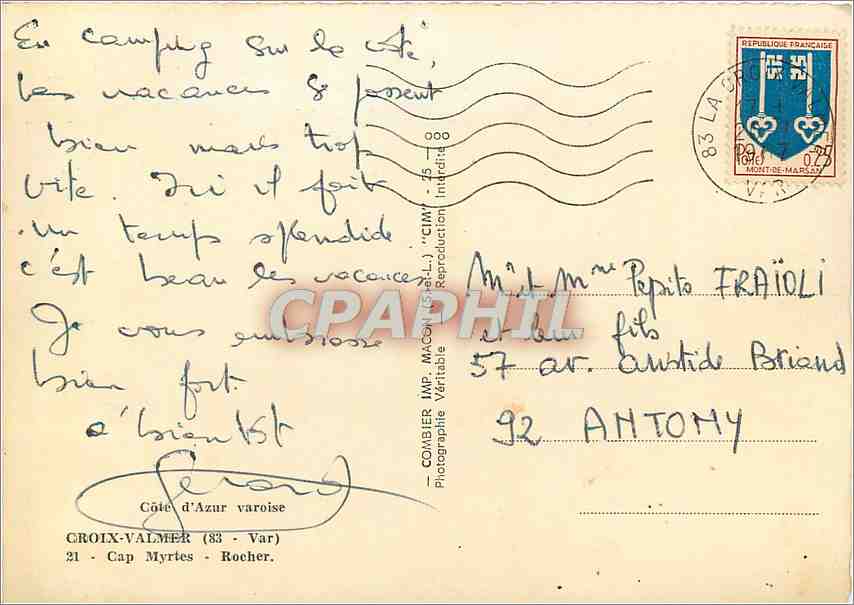 En camping sur la côte,
les vacances se passent
bien mais trop
vite. Ici il fait
un temps splendide
c'est beau les vacances
Je vous embrasse
bien fort.
a' bientôt
Gérard
Côte d'Azur varoise
CROIX-VALMER (83 - Var)
21 - Cap Myrtes - Rocher.
— COMBIER IMP. MACON (S.-et-L.) "CIM" - 25 - 8
Photographie Véritable - Reproduction Interdite
CPAPHIL
REPUBLIQUE FRANÇAISE
POSTES 0,25
MONT-DE-MARSAN
83 LA CROIX
VAR
Mr et Mme Pepito FRAÏOLI
et leur fils
57 av. Aristide Briand
92 ANTONY